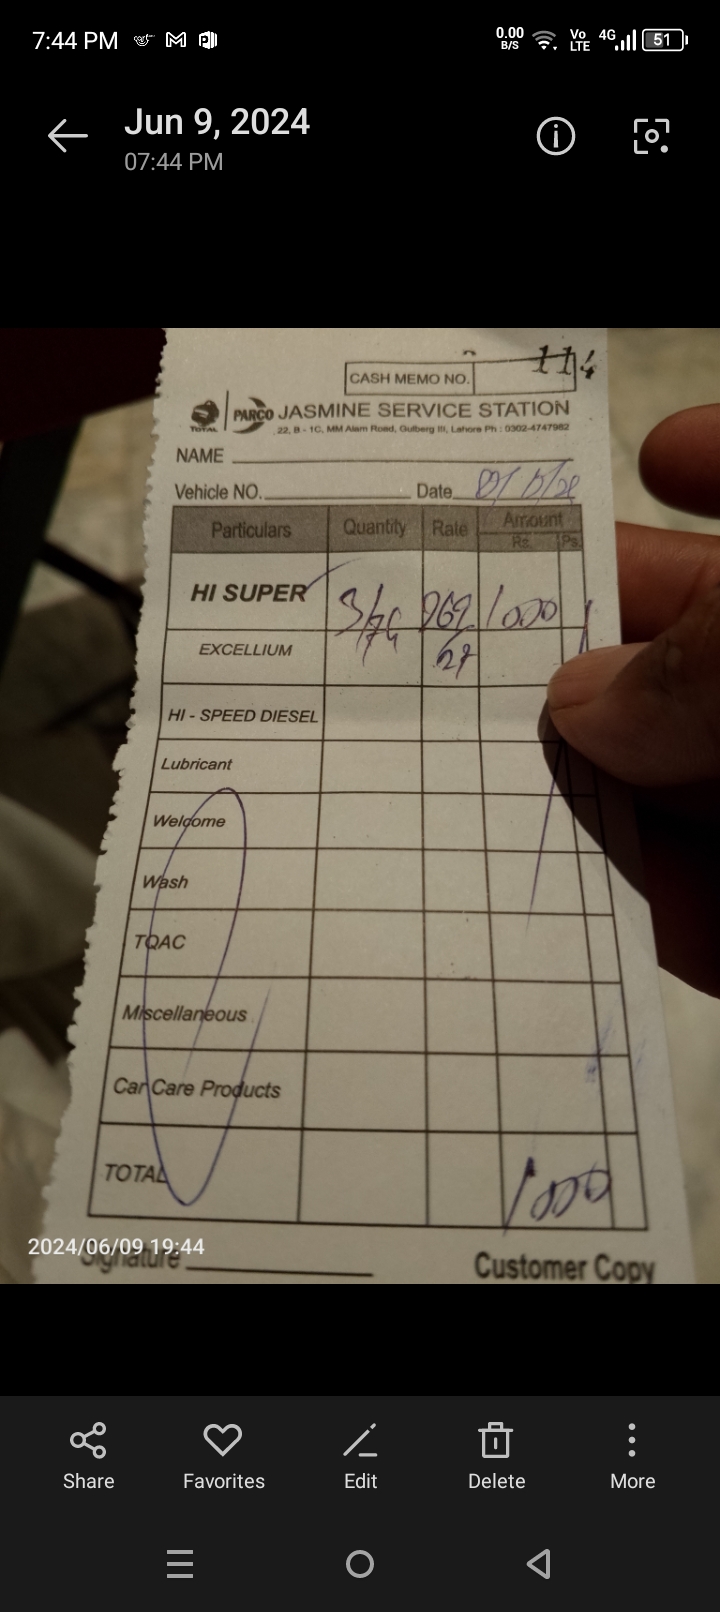 7:44 PM
0.00 B/S
Vo LTE
4G
51
Jun 9, 2024
07:44 PM
CASH MEMO NO. 114
TOTAL PARCO JASMINE SERVICE STATION
22, B - 1C, MM Alam Road, Gulberg III, Lahore Ph : 0302-4747982
NAME
Vehicle NO. Date
Particulars Quantity Rate Amount
Rs. Ps.
HI SUPER 3/74 269 1000
EXCELLIUM /27
HI - SPEED DIESEL
Lubricant
Welcome
Wash
TQAC
Miscellaneous
Car Care Products
TOTAL 1000
2024/06/09 19:44
Signature Customer Copy
Share Favorites Edit Delete More